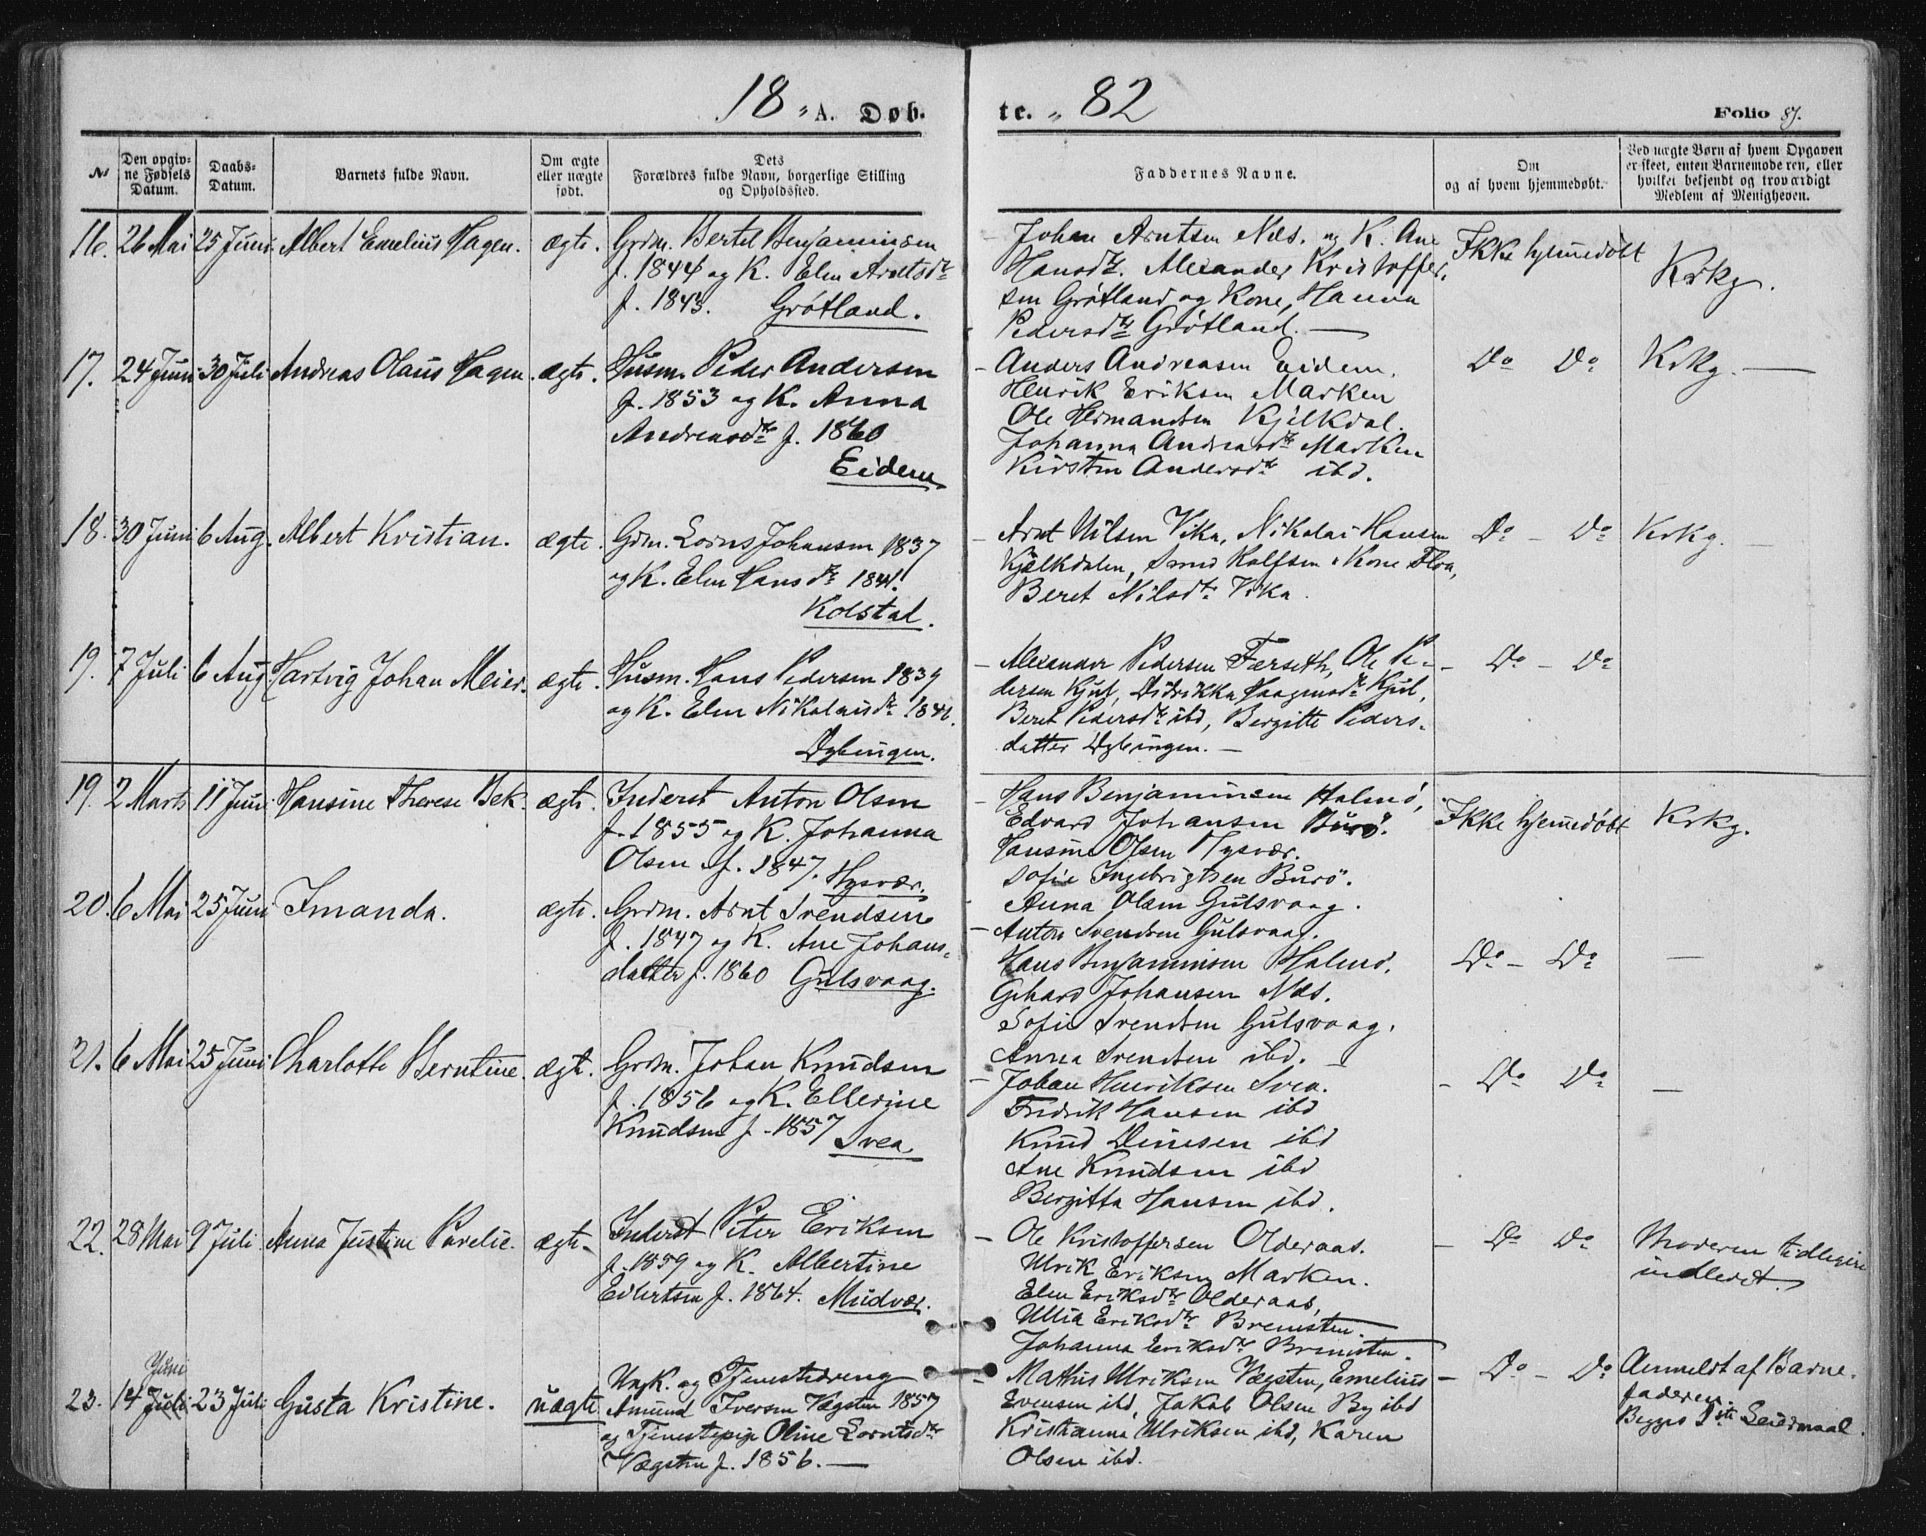 18 " A. Døb-
te. " 82
Folio 87.
№
Den opgiv-
ne Fødsels
Datum.
Daabs-
Datum.
Barnets fulde Navn.
Om ægte
eller uægte
født.
Dets
Forældres fulde Navn, borgerlige Stilling
og Opholdssted.
Faddernes Navne.
Om
og af hvem hjemmedøbt.
Ved uægte Børn af hvem Opgaven
er skeet, enten Barnemoderen, eller
hvilket bekjendt og troværdigt
Medlem af Menigheden.
16. 26 Mai 25 Juni Albert Emelius Hagen. ægte.
Grdm. Bertel Benjaminsen
f. 1844 og K. Elen Arntsdtr
f. 1843. Grøtland.
Johan Arntsen Næs. og K. Ane
Hansdtr. Alexander Kristoffer-
sen Grøtland og Kone, Hanna
Pedersdtr Grøtland. —
Ikke hjemmedøbt
Krkg.
17. 24 Juni 30 Juli Andreas Olaus Hagen. ægte.
Husm. Peder Andersen
f. 1853 og K. Anna
Andreasdtr f. 1860
Eidem
Anders Andreasen Eidem.
Henrik Eriksen Marken
Ole Hermandsen Kjelkdal.
Johanna Andreasdtr Marken
Kirsten Andersdtr ibd.
Do Do
Krkg. —
18. 30 Juni 6 Aug. Albert Kristian. ægte.
Grdm. Lorns Johansen 1837
og K. Elen Hansdtr 1841.
Kolstad.
Arnt Nilsen Vika, Nikolai Hansen
Kjelkdalen, Svend Rolfsen & Kone Floa,
Beret Nilsdtr Vika.
Do - Do
Krkg. —
19. 7 Juli 6 Aug. Hartvig Johan Meier. ægte.
Husm. Hans Pedersen 1839
og K. Elen Nikolaisdtr 1841.
Dybingen.
Alexander Pedersen Færseth, Ole Pe-
dersen Kjul, Didrikka Haagensdtr Kjul,
Beret Pedersdtr ibd, Bergitte Peders-
datter Dybingen. —
Do - Do
19. 2 Marts 11 Juni Hansine Therese Bek. ægte.
Inderst Anton Olsen
f. 1855 og K. Johanna
Olsen f. 1847. Hysvær.
Hans Benjaminsen Halmø,
Edvard Johansen Burø.
Hansine Olsen Hysvær.
Sofie Ingebrigtsen Burø.
Anna Olsen Gulsvaag.
Ikke hjemmedøbt
Krkg.
20. 6 Mai 25 Juni Imanda. ægte.
Grdm. Arnt Svendsen
f. 1847 og K. Ane Johans-
datter f. 1860 Gulsvaag.
Anton Svendsen Gulsvaag.
Hans Benjaminsen Halmø.
Gerhard Johansen Næs.
Sofie Svendsen Gulsvaag.
Anna Svendsen ibd.
Do - Do
—
21. 6 Mai 25 Juni Charlotte Berntine. ægte.
Grdm. Johan Knudsen
f. 1856 og K. Ellerine
Knudsen f. 1857 Svea.
Johan Henriksen Svea.
Fredrik Hansen ibd
Knud Dinesen ibd
Ane Knudsen ibd
Bergitta Hansen ibd.
Do Do
—
22. 28 Mai 9 Juli Anna Justine Parelie. ægte.
Inderst Peter Eriksen
f. 1859 og K. Albertine
Edvertsen f. 1864. Mudvær.
Ole Kristoffersen Olderaas.
Ulrik Eriksen Marken.
Elen Eriksdtr Olderaas,
Ullia Eriksdtr Bremsten.
Johanna Eriksdtr Bremsten.
Do Do
Moderen tidligere
indledet.
23. Juni 14 Juli 23 Juli Gusta Kristine. uægte
Ungk. og Tjenestedreng
Amund Iversen Vægsten 1857
og Tjenestepige Oline Lorntsdtr
Vægsten f. 1856. —
Mathis Ulriksen Vægsten, Emelius
Evensen ibd, Jakob Olsen By ibd
Kristianna Ulriksen ibd, Karen
Olsen ibd.
Do - Do
Anmeldt af Barne-
faderen
Begges 1ste Leiermaal.